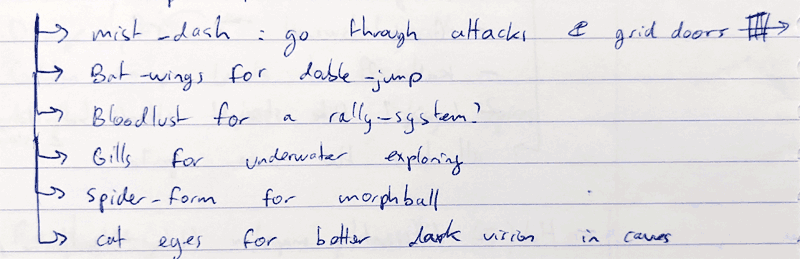 mist-dash : go through attacks & grid doors
Bat-wings for dable-jump
Bloodlust for a rally-system?
Gills for underwater exploring
spider-form for morphball
cat eyes for better dark vision in caves